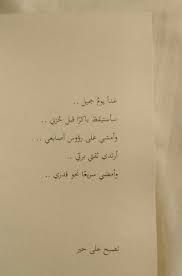 غداً يومٌ جميل ..
سأستيقظ باكرًا قبل حُزني ..
وأمشي على رؤوس أصابعي ..
أرتدي ثقتي بربّي ..
وأمضي سريعًا نحو قدري ..
تصبح على خير